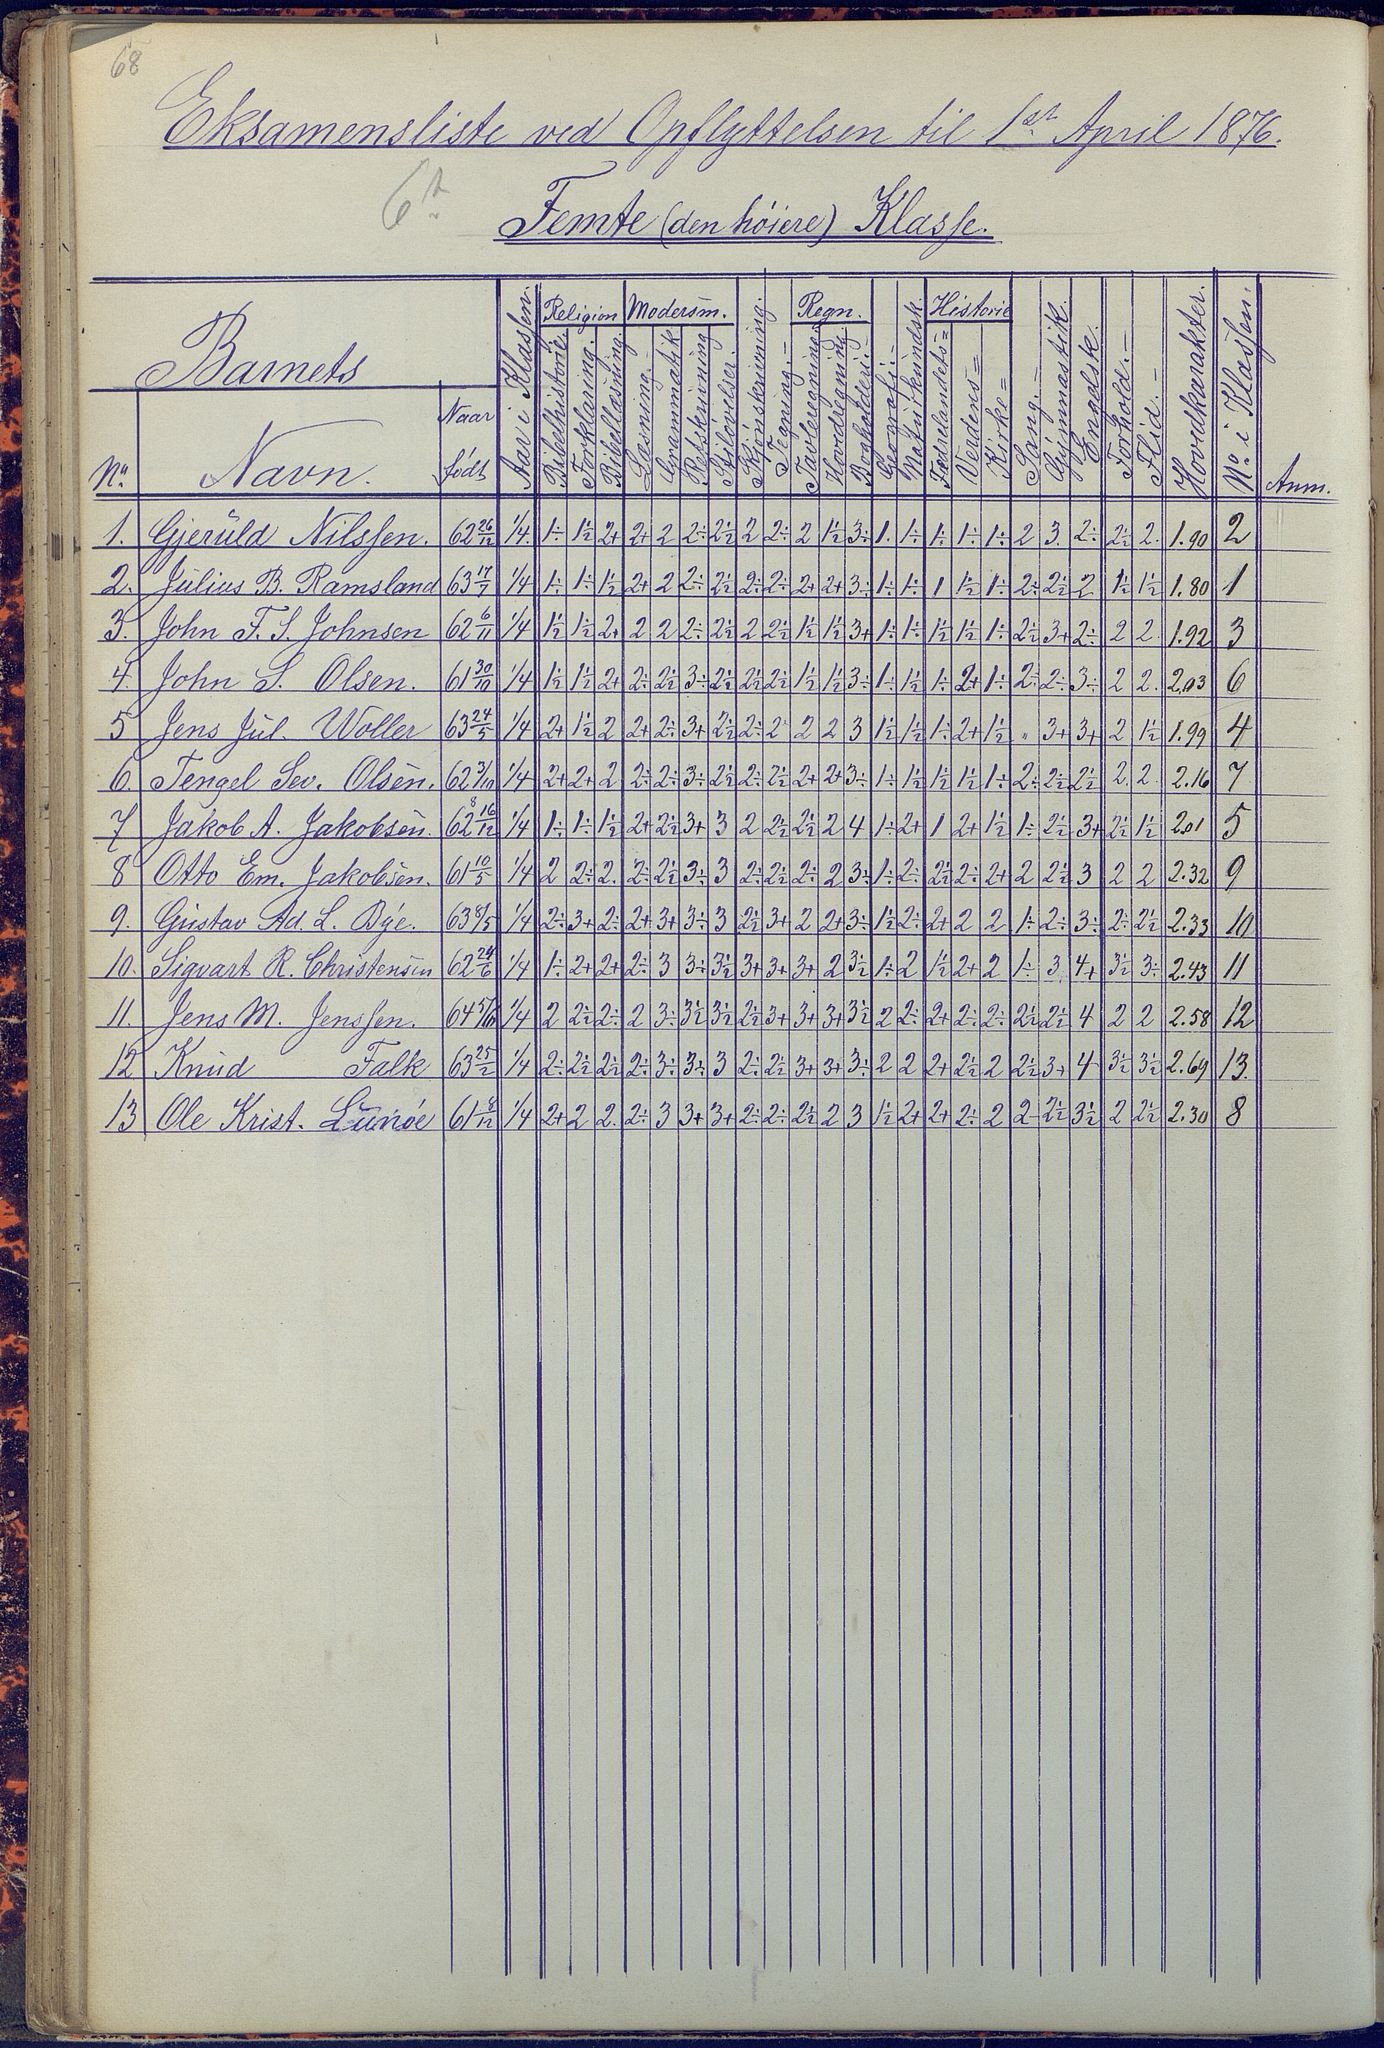 68
Eksamensliste ved Opflyttelsen til 1st April 1876.
6te
Femte (den höiere) Klasse.
Barnets
No. Navn. Naar født Aar i Klassen. Religion Bibelhistorie. Forklaring. Bibellæsning. Modersm. Læsning. Grammatik Retskrivning Stiløvelser. Skjönskrivning. Tegning. Regn. Tavleregning. Hovedregning Bogholderi. Geografi. Naturkundsk. Historie Fædrelandets= Verdens= Kirke= Sang. Gÿmnastik. Engelsk. Forhold. Flid. Hovedkarakter. No. i Klassen. Anm.
1. Gjerüld Nilssen. 62 26/12 1/4 1÷ 1½ 2+ 2+ 2 2÷ 2½ 2 2÷ 2 1½ 3÷ 1. 1÷ 1÷ 1÷ 1÷ 2 3. 2÷ 2½ 2. 1.90 2
2. Julius B. Ramsland 63 17/7 1/4 1÷ 1÷ 1½ 2+ 2 2÷ 2½ 2÷ 2÷ 2+ 2+ 3÷ 1÷ 1÷ 1 1½ 1÷ 2÷ 2½ 2 1½ 1½ 1.80 1
3. John F. S. Johnsen 62 6/11 1/4 1½ 1½ 2+ 2 2 2÷ 2½ 2 2½ 1½ 1½ 3+ 1÷ 1÷ 1½ 1½ 1÷ 2½ 3+ 2÷ 2 2. 1.92 3
4. John S. Olsen. 61 30/10 1/4 1½ 1½ 2+ 2÷ 2½ 3÷ 2½ 2½ 2½ 1½ 1½ 3÷ 1÷ 1½ 1÷ 2+ 1÷ 2÷ 2÷ 3÷ 2 2. 2.03 6
5 Jens Jül. Woller 63 24/5 1/4 2+ 1½ 2 2+ 2÷ 3+ 2½ 2÷ 2 2 2 3 1½ 1½ 1÷ 2+ 1½ „ 3+ 3+ 2 1½ 1.99 4
6. Tengel Sev. Olsen. 62 3/10 1/4 2+ 2+ 2 2÷ 2÷ 3÷ 2½ 2÷ 2÷ 2+ 2+ 3÷ 1÷ 1½ 1½ 1½ 1÷ 2÷ 2½ 2½ 2. 2. 2.16 7
7 Jakob A. Jakobsen. 62 16/12 8 1/4 1÷ 1÷ 1½ 2+ 2½ 3+ 3 2 2½ 2½ 2 4 1÷ 2+ 1 2+ 1½ 1÷ 2½ 3+ 2½ 1½ 2.01 5
8 Otto Em. Jakobsen. 61 10/5 1/4 2 2÷ 2. 2÷ 2½ 3÷ 3 2÷ 2½ 2÷ 2 3÷ 1÷ 2÷ 2½ 2÷ 2+ 2 2½ 3 2 2 2.32 9
9. Gustav Ad. L. Bÿe. 63 8/5 1/4 2÷ 3+ 2÷ 2+ 3+ 3÷ 3 2½ 3+ 2 2+ 3÷ 1½ 2÷ 2+ 2 2 1÷ 2÷ 3÷ 2÷ 2½ 2.33 10
10. Sigvart R. Christensen 62 24/6 1/4 1÷ 2+ 2+ 2÷ 3 3÷ 3½ 3+ 3+ 3+ 2 3½ 1÷ 2 1½ 2+ 2 1÷ 3 4+ 3½ 3÷ 2.43 11
11. Jens M. Jenssen. 64 5/10 1/4 2 2½ 2÷ 2 3÷ 3½ 3½ 2½ 3+ 3+ 3+ 3½ 2 2÷ 2+ 2÷ 2÷ 2½ 2½ 4 2 2 2.58 12
12 Knüd Falk 63 25/2 1/4 2÷ 2½ 2½ 2÷ 3÷ 3÷ 3 2÷ 2½ 3+ 3+ 3÷ 2 2 2+ 2½ 2 2½ 3+ 4 3½ 3½ 2.69 13.
13 Ole Krist. Lünöe 61 8/12 1/4 2+ 2 2. 2÷ 3 3+ 3+ 2÷ 2÷ 2½ 2 3 1½ 2+ 2+ 2÷ 2 2 2½ 3½ 2 2½ 2.30 8